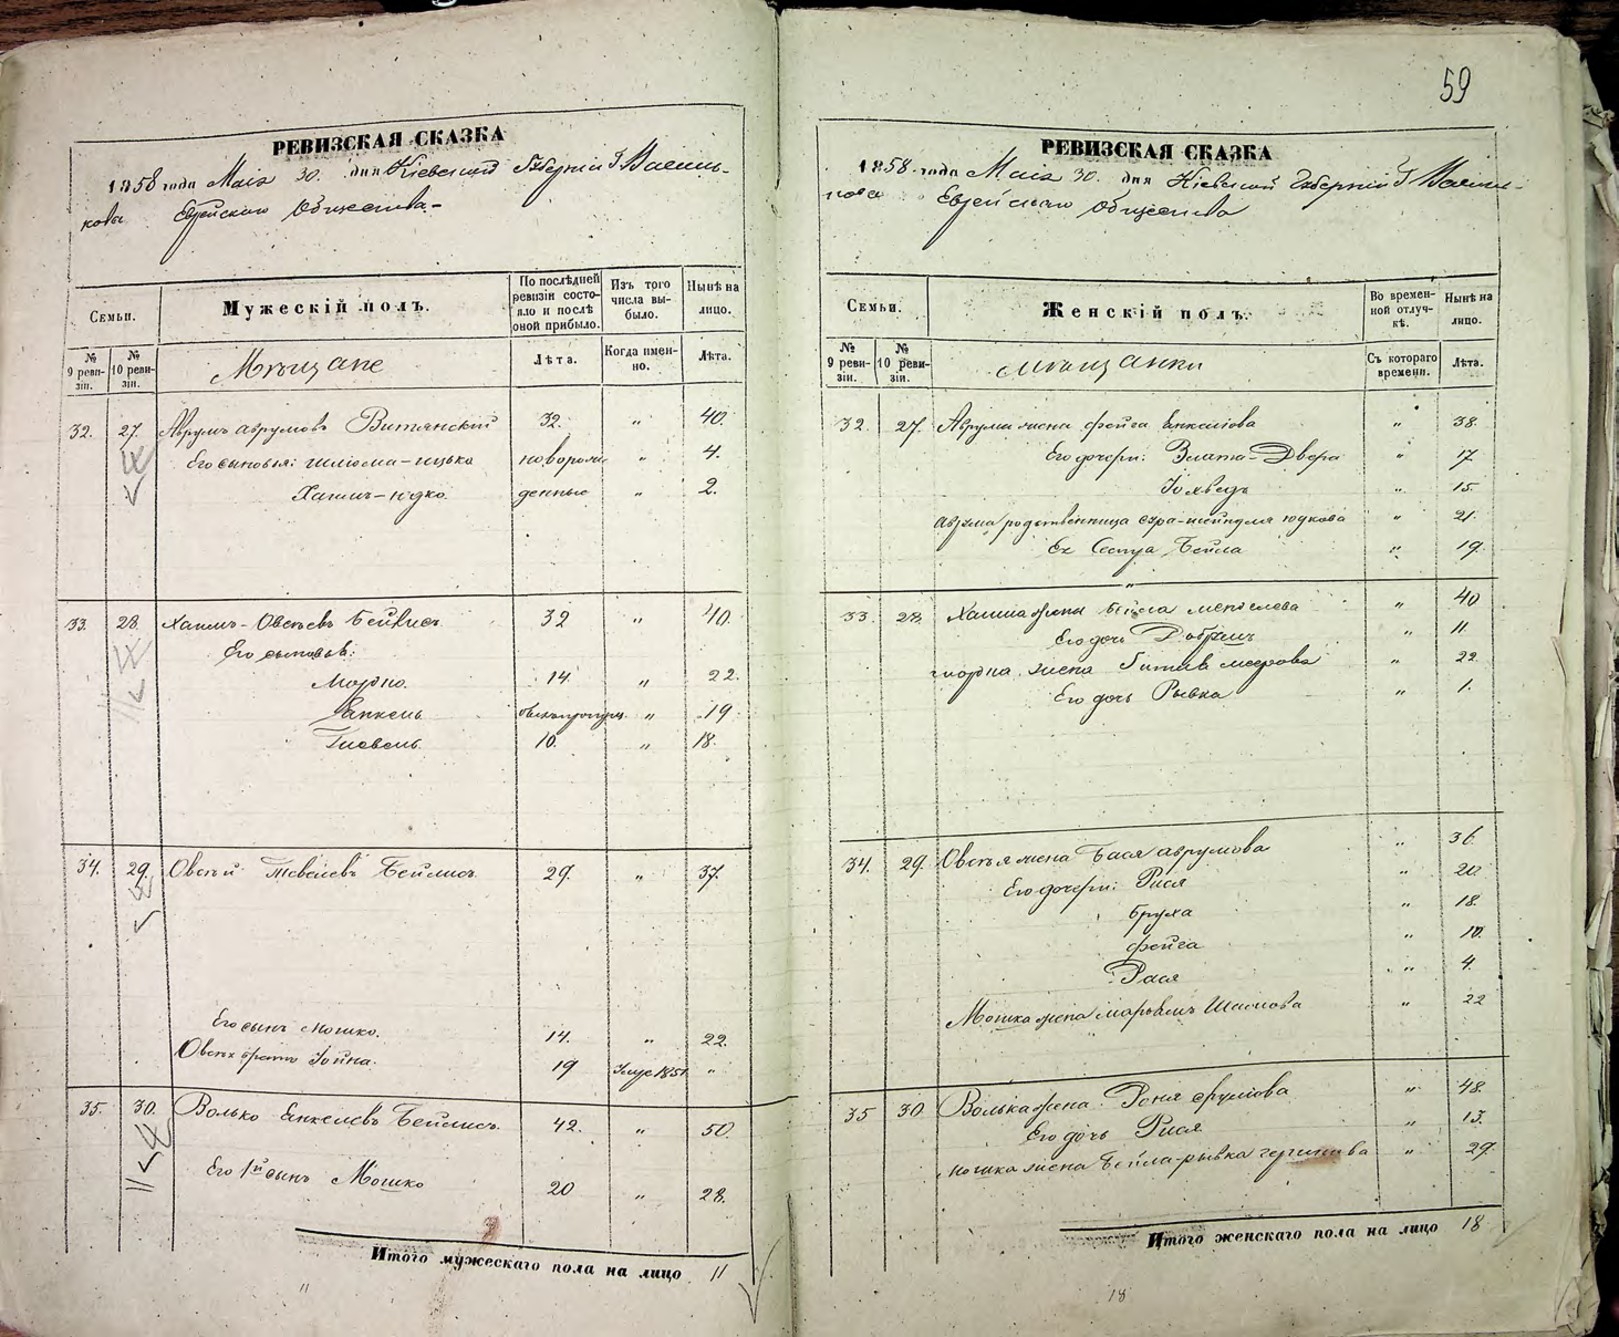 59
РЕВИЗСКАЯ СКАЗКА
1858 года Маія 30. дня Кіевской Губерніи Г Василь-
кова Еврейскаго Общества-
Семьи.
Мужескій полъ.
По послѣдней ревизіи состо-яло и послѣ оной прибыло.
Изъ того числа вы-было.
Нынѣ на лицо.
№ 9 реви-зіи.
№ 10 реви-зіи.
Мѣщане
Лѣта.
Когда имен-но.
Лѣта.
32. 27. Аврумъ Аврумовъ Витянскій 32. " 40.
Его сыновья: Шлиома-Ицько новорож " 4.
Хаимъ-Юдко. денные " 2.
33. 28. Хаимъ-Овсѣевъ Бейлисъ 32 " 40.
Его сыновья:
Мордко. 14. " 22.
Янкель " 19
Тевель. 10. " 18.
34. 29. Овсѣй Тевелевъ Бейлисъ 29. " 37.
Его сынъ Мошко. 14. " 22.
Овсѣя братъ Іойна. 19 1851 "
35. 30. Волько Янкелевъ Бейлисъ. 42. " 50.
Его 1й сынъ Мошко 20 " 28.
Итого мужескаго пола на лицо 11
11
РЕВИЗСКАЯ СКАЗКА
1858 года Маія 30 дня Кіевской Губерніи Г Василь-
кова Еврейскаго Общества
Семьи.
Женскій полъ.
Во времен-ной отлуч-кѣ.
Нынѣ на лицо.
№ 9 реви-зіи.
№ 10 реви-зіи.
Мѣщанки
Съ котораго времени.
Лѣта.
32 27. Аврума жена Фейга Янкелова " 38.
Его дочери: Злата-Двера " 17
Іохведъ " 15.
Аврума родственница Сура-Шейндля Юдкова " 21.
Ея Сестра Бейла " 19.
33. 28. Хаима жена Бейла " 40
Его дочь " 11.
Мордка жена Меерова " 22
Его дочь Рывка " 1.
34. 29. Овсѣя жена Бася Аврумова " 36
Его дочери: Рися " 20
Бруха " 18.
Фейга " 10.
Рася " 4.
Мошка жена Марьямъ " 22
35 30. Волька жена " 48.
Его дочь Рися " 13.
Мошка жена Бейла-Рывка " 29.
Итого женскаго пола на лицо 18
18